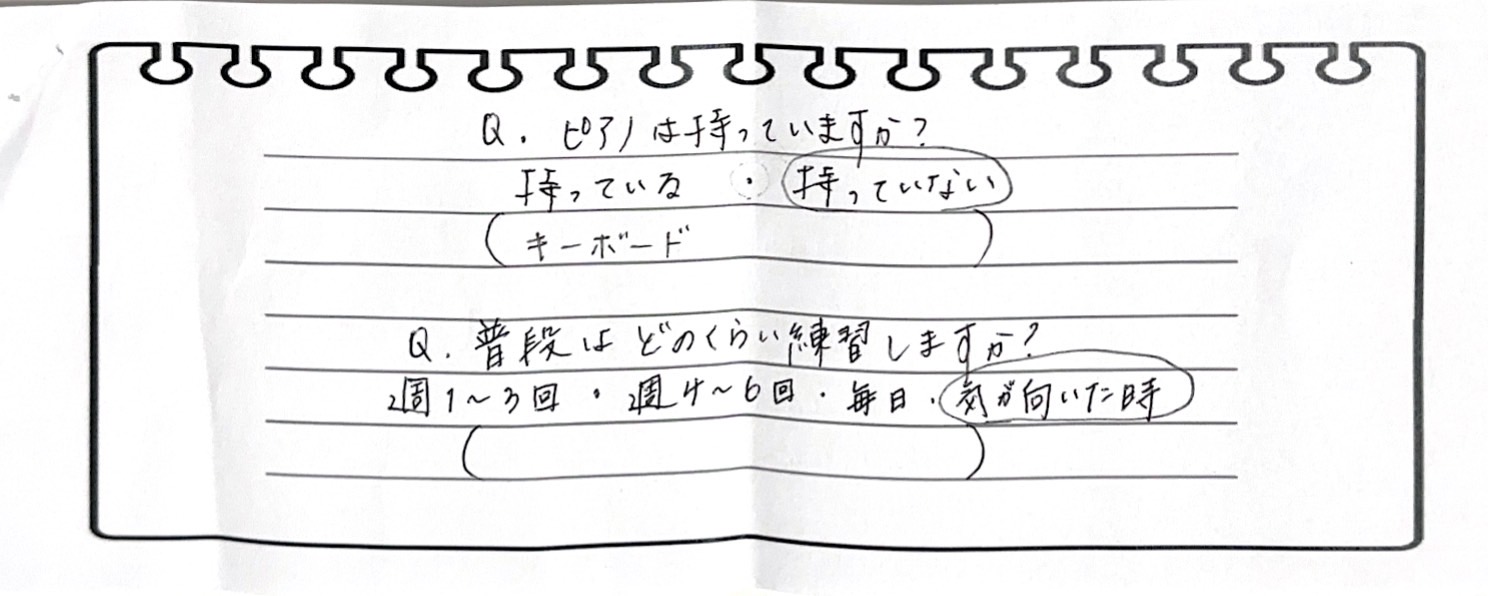 Q. ピアノは持っていますか?
持っている ・ 持っていない
( キーボード )
Q. 普段はどのくらい練習しますか?
週1〜3回 ・ 週4〜6回 ・ 毎日 ・ 気が向いた時
( )